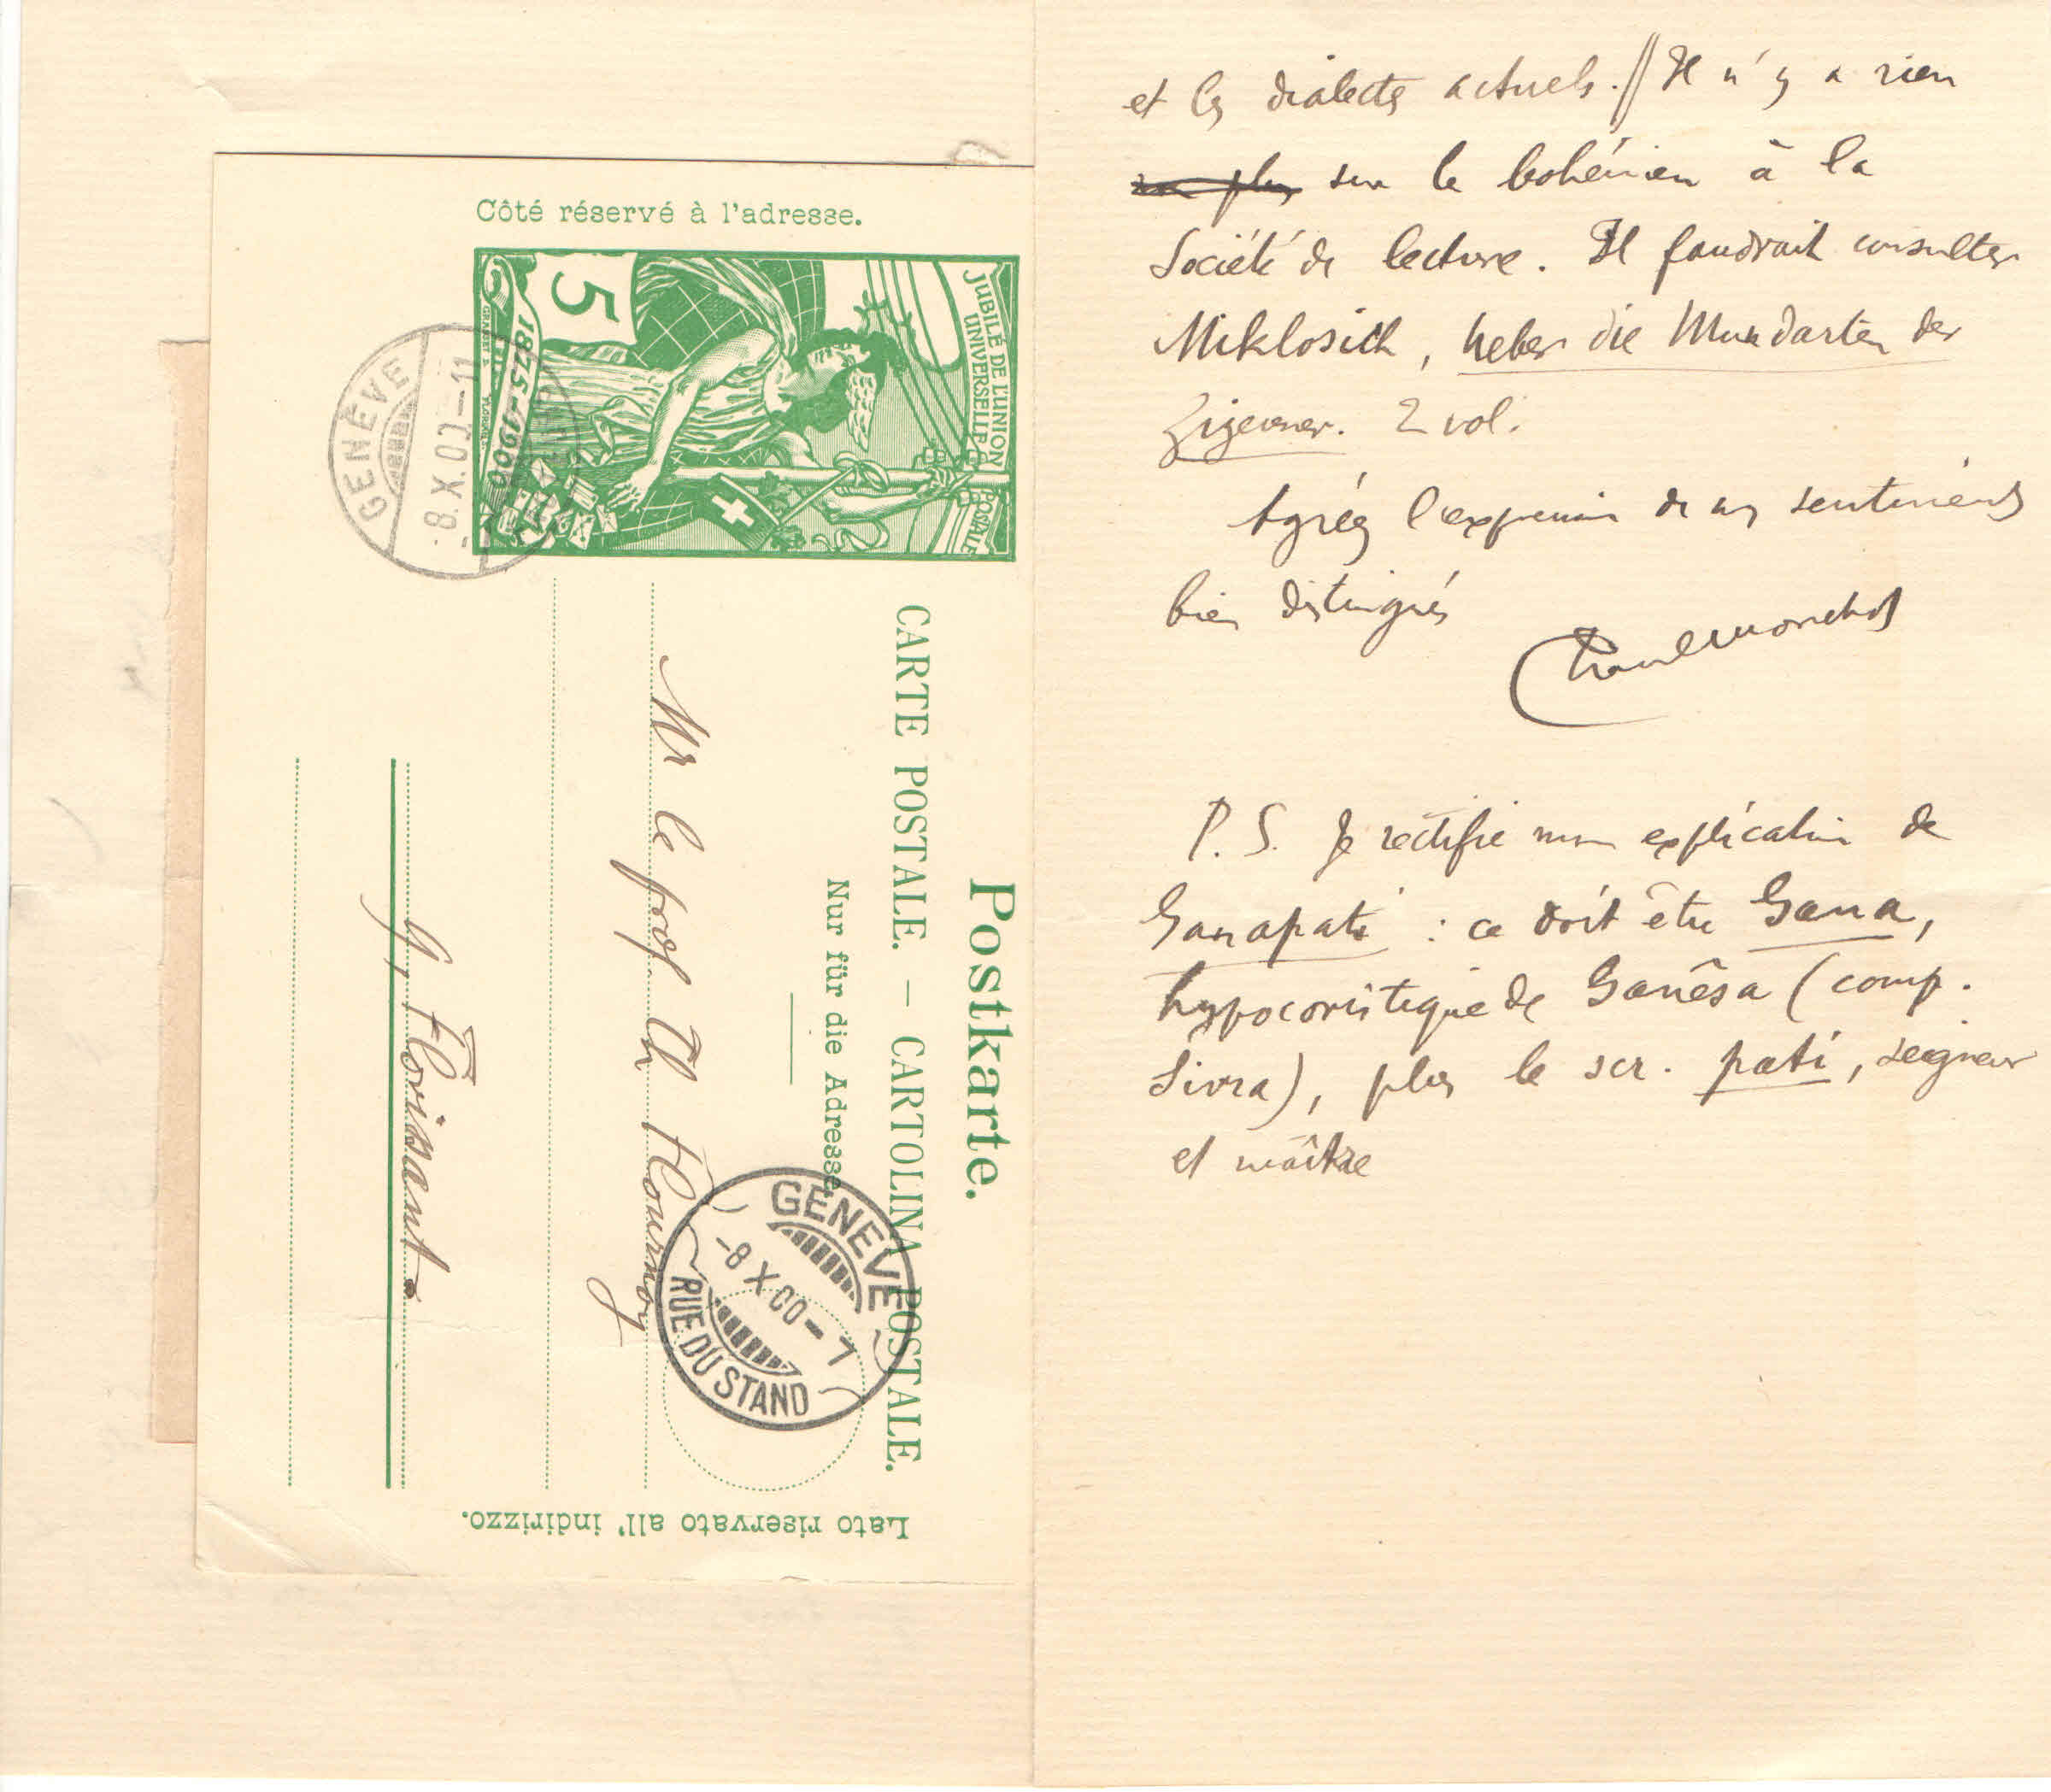 Côté réservé à l'adresse.
JUBILÉ DE L'UNION
UNIVERSELLE
POSTALE
5
1875-1900
GENÈVE
-8.X.00-11
Postkarte.
CARTE POSTALE. — CARTOLINA POSTALE.
Nur für die Adresse
GENÈVE
-8 X 00-
RUE DU STAND
Mr le prof. Th Flournoy
9, Florissant.
Lato riservato all' indirizzo.
et les dialectes actuels. // Il n'y a rien
plus sur le bohémien à la
Société de lecture. Il faudrait consulter
Miklosich, Ueber die Mundarten der
Zigeuner. 2 vol.
Agréez l'expression de mes sentiments
bien distingués
P. S. Je rectifie mon explication de
Ganapati : ce doit être Gana,
hypocoristique de Ganêsa (comp.
Sivra), plus le scr. pati, seigneur
et maître